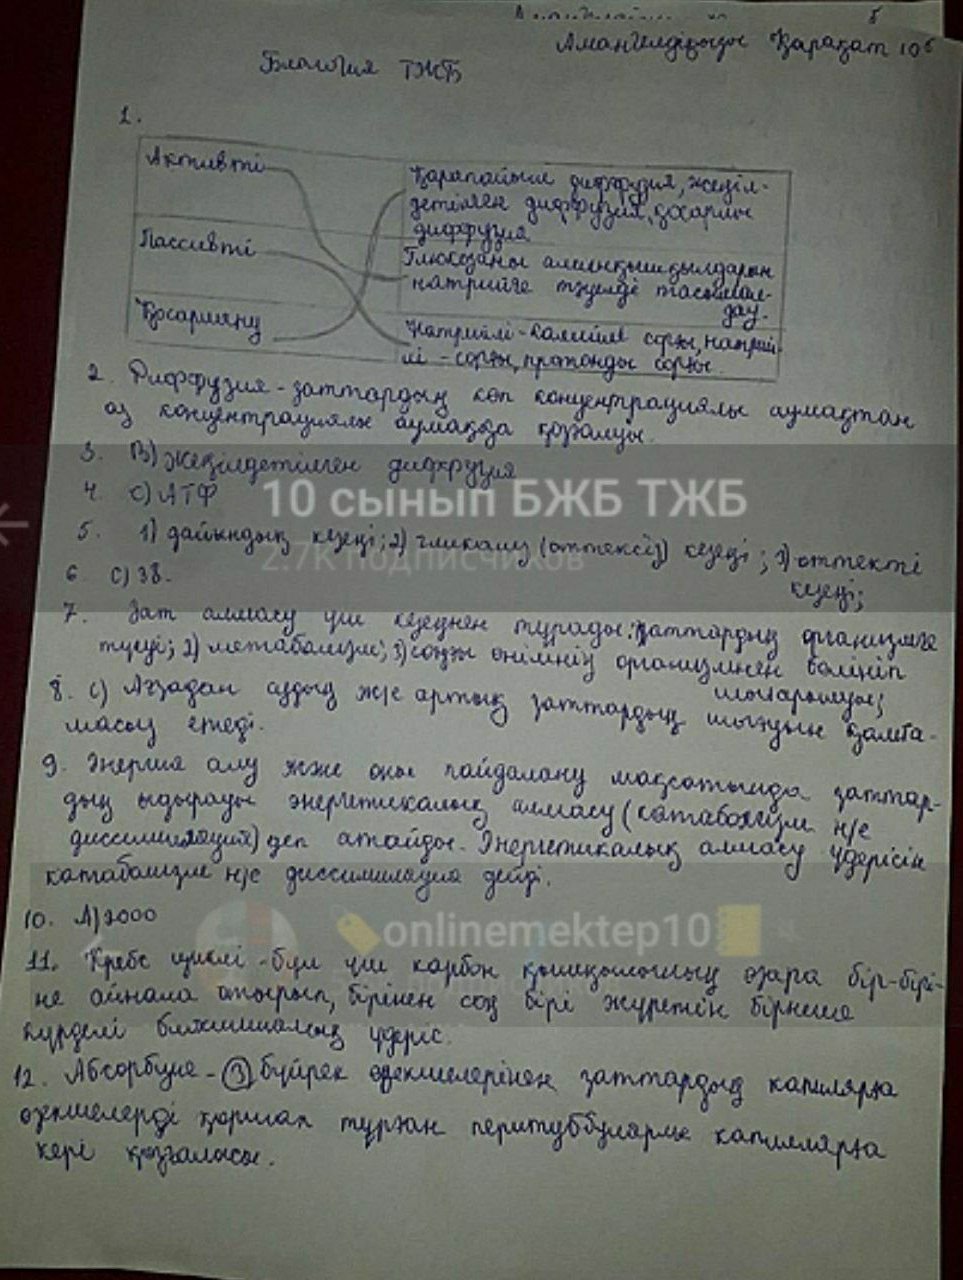 Амангелдіқызы Қарақат 10б
Биология ТЖБ
1.
Активті
Қарапайым диффузия, жеңіл-
детілген диффузия, қосарлы
диффузия
Пассивті
Глюкозаны аминқышқылдарын
натрийге тәуелді тасымал-
дау.
Қосарлану
Натрийлі-калийлі сорғы, натрий-
лі-сорғы, протонды сорғы.
2. Диффузия-заттардың көп концентрациялы аумақтан
аз концентрациялы аумаққа қозғалуы.
3. В) Жеңілдетілген диффузия
4. С) АТФ
10 сынып БЖБ ТЖБ
5. 1) дайындық кезеңі; 2) гликолиз (оттексіз) кезеңі; 3) оттекті
кезеңі;
2.7K подписчиков
6. С) 38.
7. Зат алмасу үш кезеңнен тұрады: заттардың организмге
түсуі; 2) метаболизм; 3) соңғы өнімнің организмнен бөлініп
шығарылуы;
8. С) Ағзадан судың ж/е артық заттардың шығуын қамта-
масыз етеді.
9. Энергия алу және оны пайдалану мақсатында заттар-
дың ыдырауын энергетикалық алмасу (катаболизм н/е
диссимиляция) деп атайды. Энергетикалық алмасу үдерісін
катаболизм н/е диссимиляция дейді.
10. А) 2000
onlinemektep10
11. Кребс циклі-бұл үш карбон қышқылының өзара бір-бірі-
не айнала отырып, бірінен соң бірі жүретін бірнеше
күрделі биохимиялық үдеріс.
12. Абсорбция-(3) бүйрек өзекшелерінен заттардың капилярға
өзекшелерді қоршап тұрған перитуббулярлы капиллярға
кері қозғалысы.